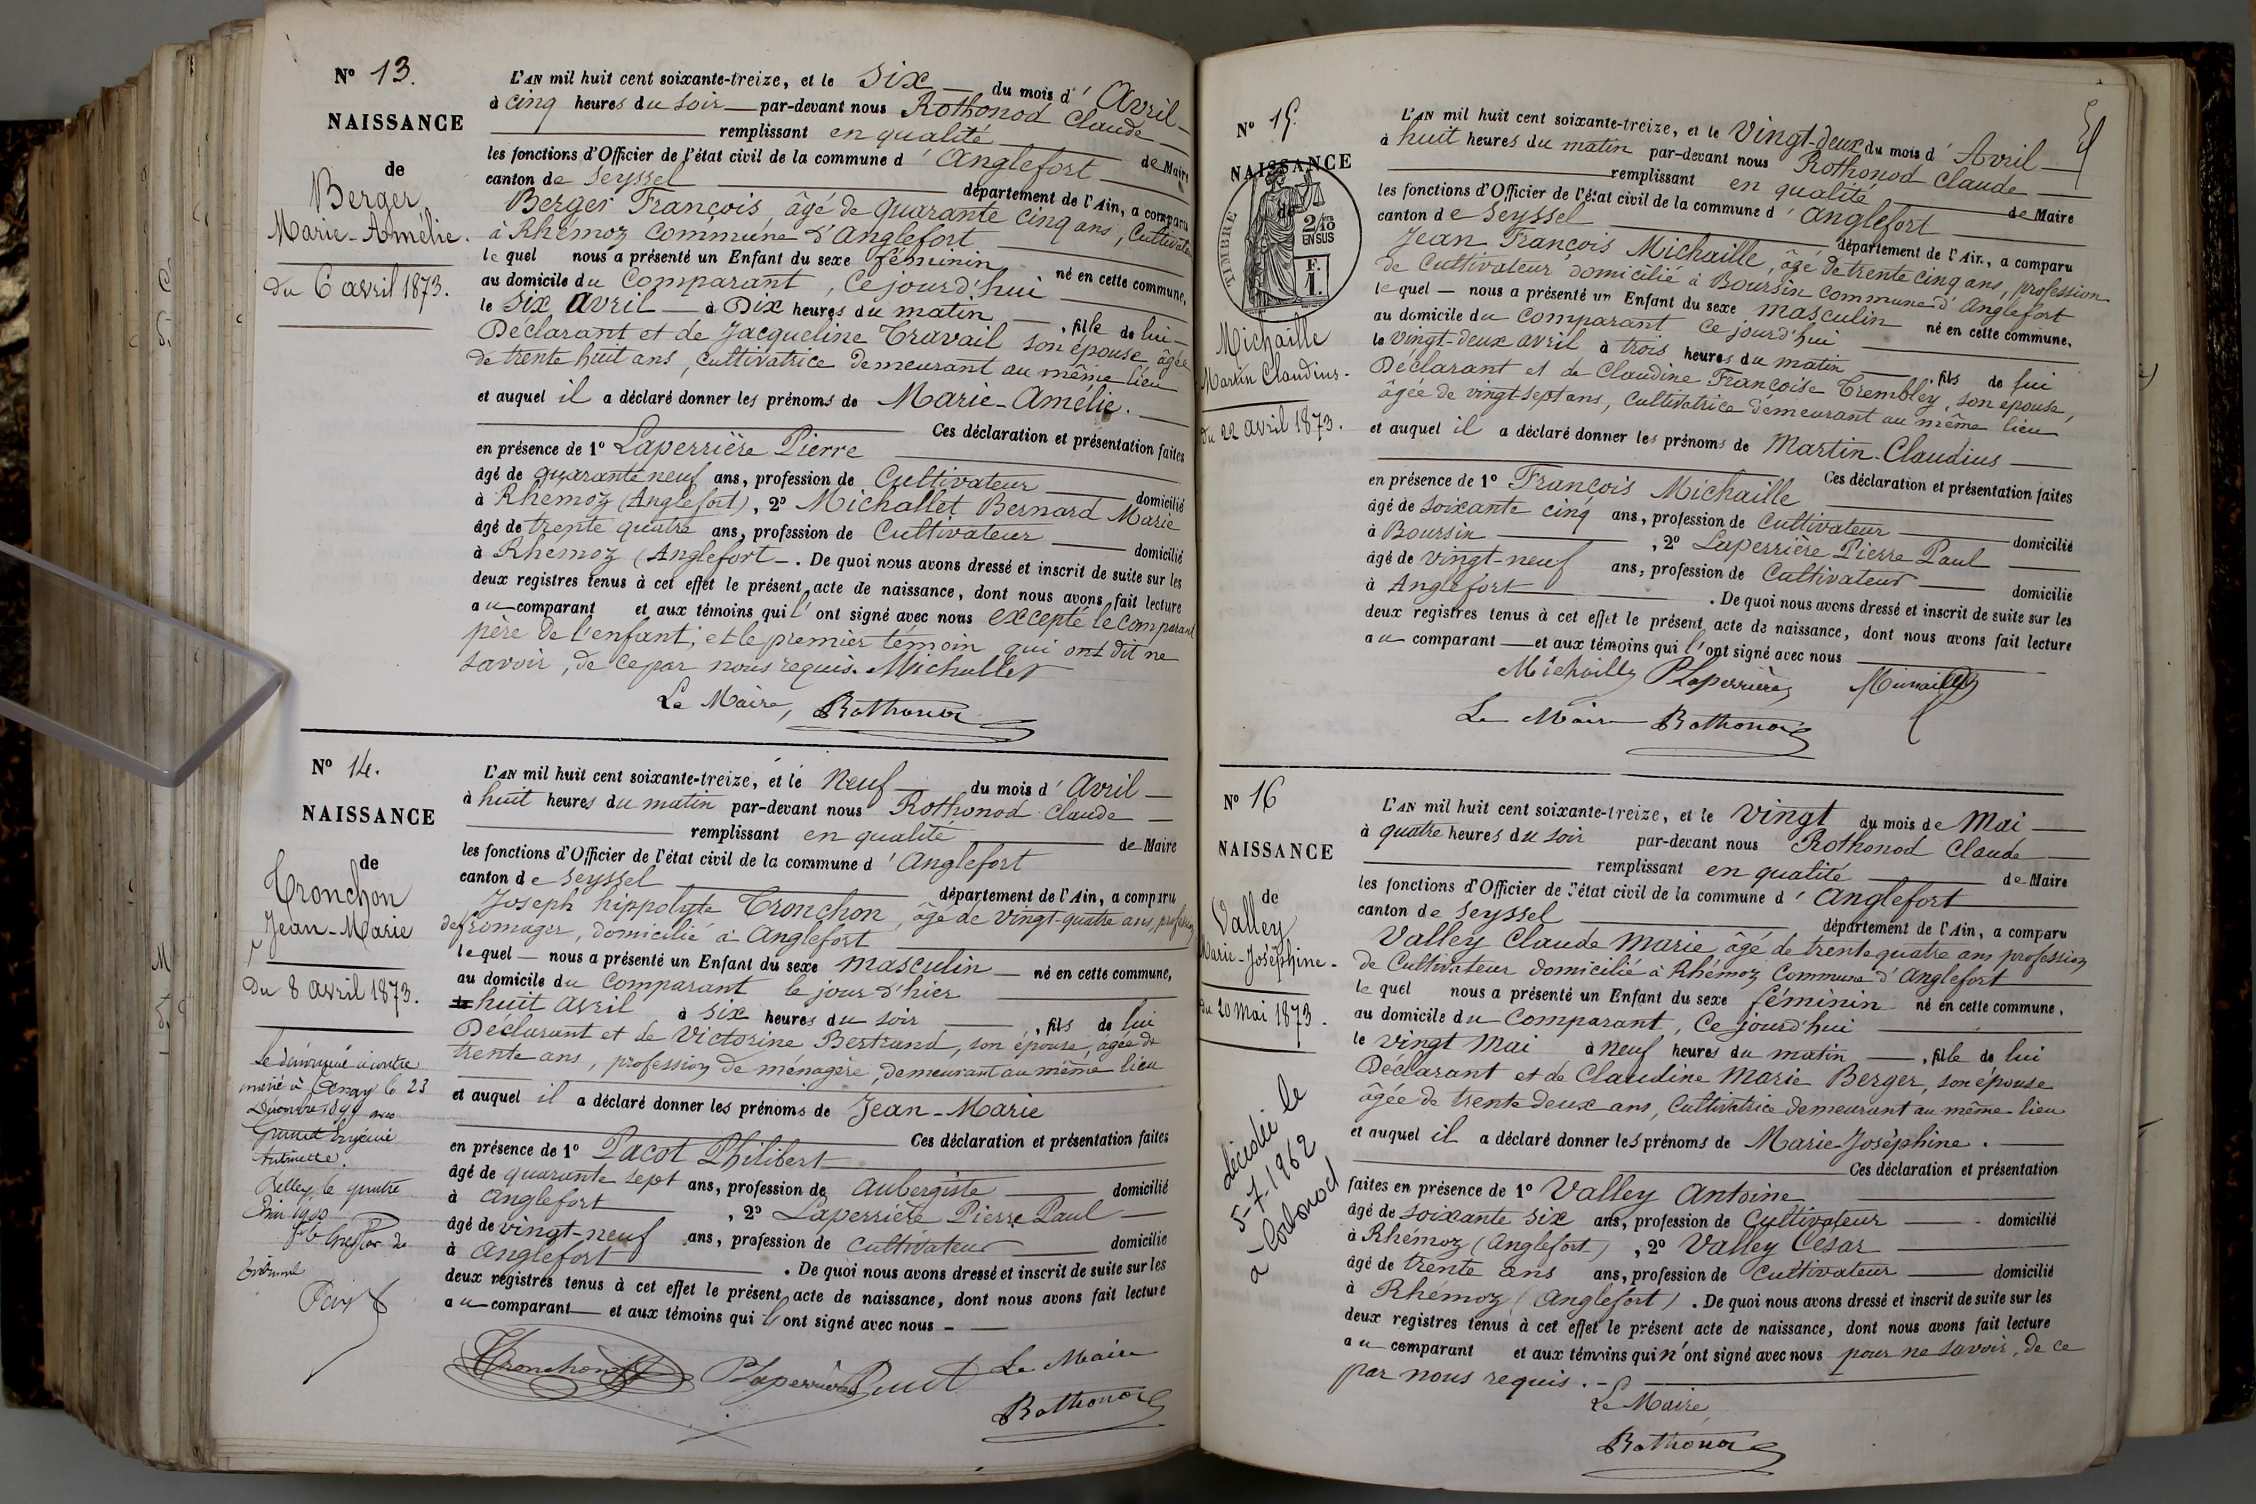 N° 13.
NAISSANCE
de
Berger
Marie-Amélie.
du 6 avril 1873.
L'AN mil huit cent soixante-treize, et le Six du mois d' Avril
à cinq heures du soir par-devant nous Rothonod Claude
remplissant en qualité de Maire
les fonctions d'Officier de l'état civil de la commune d' Anglefort
canton de Seyssel département de l'Ain, a comparu
Berger François, âgé de quarante cinq ans, Cultivateur
à Rhémoz Commune d'Anglefort
lequel nous a présenté un Enfant du sexe féminin né en cette commune,
au domicile du Comparant, Ce jourd'hui
le Six Avril à Dix heures du matin, fille de lui
Déclarant et de Jacqueline Travail son épouse âgée
de trente huit ans, cultivatrice demeurant au même lieu
et auquel il a déclaré donner les prénoms de Marie-Amélie.
Ces déclaration et présentation faites
en présence de 1° Laperrière Pierre
âgé de quarante neuf ans, profession de Cultivateur domicilié
à Rhémoz (Anglefort), 2° Michallet Bernard Marie
âgé de trente quatre ans, profession de Cultivateur domicilié
à Rhémoz (Anglefort. De quoi nous avons dressé et inscrit de suite sur les
deux registres tenus à cet effet le présent acte de naissance, dont nous avons fait lecture
au comparant et aux témoins qui l'ont signé avec nous excepté le comparant
père de l'enfant, et le premier témoin qui ont dit ne
savoir, de ce par nous requis. Michallet
Le Maire, Rothonod
N° 14.
NAISSANCE
de
Tronchon
Jean-Marie
du 8 avril 1873.
marié à le 23
Belley le quatre
L'AN mil huit cent soixante-treize, et le Neuf du mois d' Avril
à huit heures du matin par-devant nous Rothonod Claude
remplissant en qualité de Maire
les fonctions d'Officier de l'état civil de la commune d' Anglefort
canton de Seyssel département de l'Ain, a comparu
Joseph hippolyte Tronchon, âgé de vingt-quatre ans, profession
de fromager, domicilié à Anglefort
lequel nous a présenté un Enfant du sexe masculin né en cette commune,
au domicile du Comparant le jour d'hier
le huit avril à six heures du soir, fils de lui
Déclarant et de Victorine Bertrand, son épouse, âgée de
trente ans, profession de ménagère, demeurant au même lieu
et auquel il a déclaré donner les prénoms de Jean-Marie
Ces déclaration et présentation faites
en présence de 1° Pacot Philibert
âgé de quarante sept ans, profession de Aubergiste domicilié
à Anglefort, 2° Laperrière Pierre Paul
âgé de vingt-neuf ans, profession de cultivateur domicilié
à Anglefort. De quoi nous avons dressé et inscrit de suite sur les
deux registres tenus à cet effet le présent acte de naissance, dont nous avons fait lecture
au comparant et aux témoins qui l'ont signé avec nous
Tronchon PLaperrière Le Maire
Rothonod
N° 15.
NAISSANCE
de
TIMBRE
2/10
EN SUS
Michaille
Martin Claudius.
du 22 avril 1873.
L'AN mil huit cent soixante-treize, et le Vingt-deux du mois d' Avril
à huit heures du matin par-devant nous Rothonod Claude
remplissant en qualité de Maire
les fonctions d'Officier de l'état civil de la commune d' Anglefort
canton de Seyssel département de l'Ain, a comparu
Jean François Michaille, âgé de trente cinq ans, profession
de Cultivateur domicilié à Boursin Commune d'Anglefort
lequel nous a présenté un Enfant du sexe masculin né en cette commune,
au domicile du comparant Ce jourd'hui
le Vingt-deux avril à trois heures du matin, fils de lui
Déclarant et de Claudine Françoise Trembley, son épouse,
âgée de vingt-sept ans, Cultivatrice demeurant au même lieu
et auquel il a déclaré donner les prénoms de Martin-Claudius
Ces déclaration et présentation faites
en présence de 1° François Michaille
âgé de soixante cinq ans, profession de Cultivateur domicilié
à Boursin, 2° Laperrière Pierre Paul
âgé de vingt-neuf ans, profession de Cultivateur domicilié
à Anglefort. De quoi nous avons dressé et inscrit de suite sur les
deux registres tenus à cet effet le présent acte de naissance, dont nous avons fait lecture
au comparant et aux témoins qui l'ont signé avec nous
Michaille PLaperrière
Le Maire Rothonod
N° 16
NAISSANCE
de
Valley
Marie-Joséphine.
du 20 Mai 1873.
décédée le
5-7-1962
à Corbonod
L'AN mil huit cent soixante-treize, et le Vingt du mois de Mai
à quatre heures du soir par-devant nous Rothonod Claude
remplissant en qualité de Maire
les fonctions d'Officier de l'état civil de la commune d' Anglefort
canton de Seyssel département de l'Ain, a comparu
Valley Claude Marie âgé de trente quatre ans profession
de Cultivateur domicilié à Rhémoz Commune d'Anglefort
lequel nous a présenté un Enfant du sexe féminin né en cette commune,
au domicile du Comparant, Ce jourd'hui
le vingt Mai à Neuf heures du matin, fille de lui
Déclarant et de Claudine Marie Berger, son épouse
âgée de trente deux ans, Cultivatrice demeurant au même lieu
et auquel il a déclaré donner les prénoms de Marie-Joséphine.
Ces déclaration et présentation
faites en présence de 1° Valley Antoine
âgé de soixante six ans, profession de Cultivateur domicilié
à Rhémoz (Anglefort), 2° Valley César
âgé de trente ans ans, profession de Cultivateur domicilié
à Rhémoz (Anglefort). De quoi nous avons dressé et inscrit de suite sur les
deux registres tenus à cet effet le présent acte de naissance, dont nous avons fait lecture
au comparant et aux témoins qui n'ont signé avec nous pour ne savoir, de ce
par nous requis.
Le Maire
Rothonod